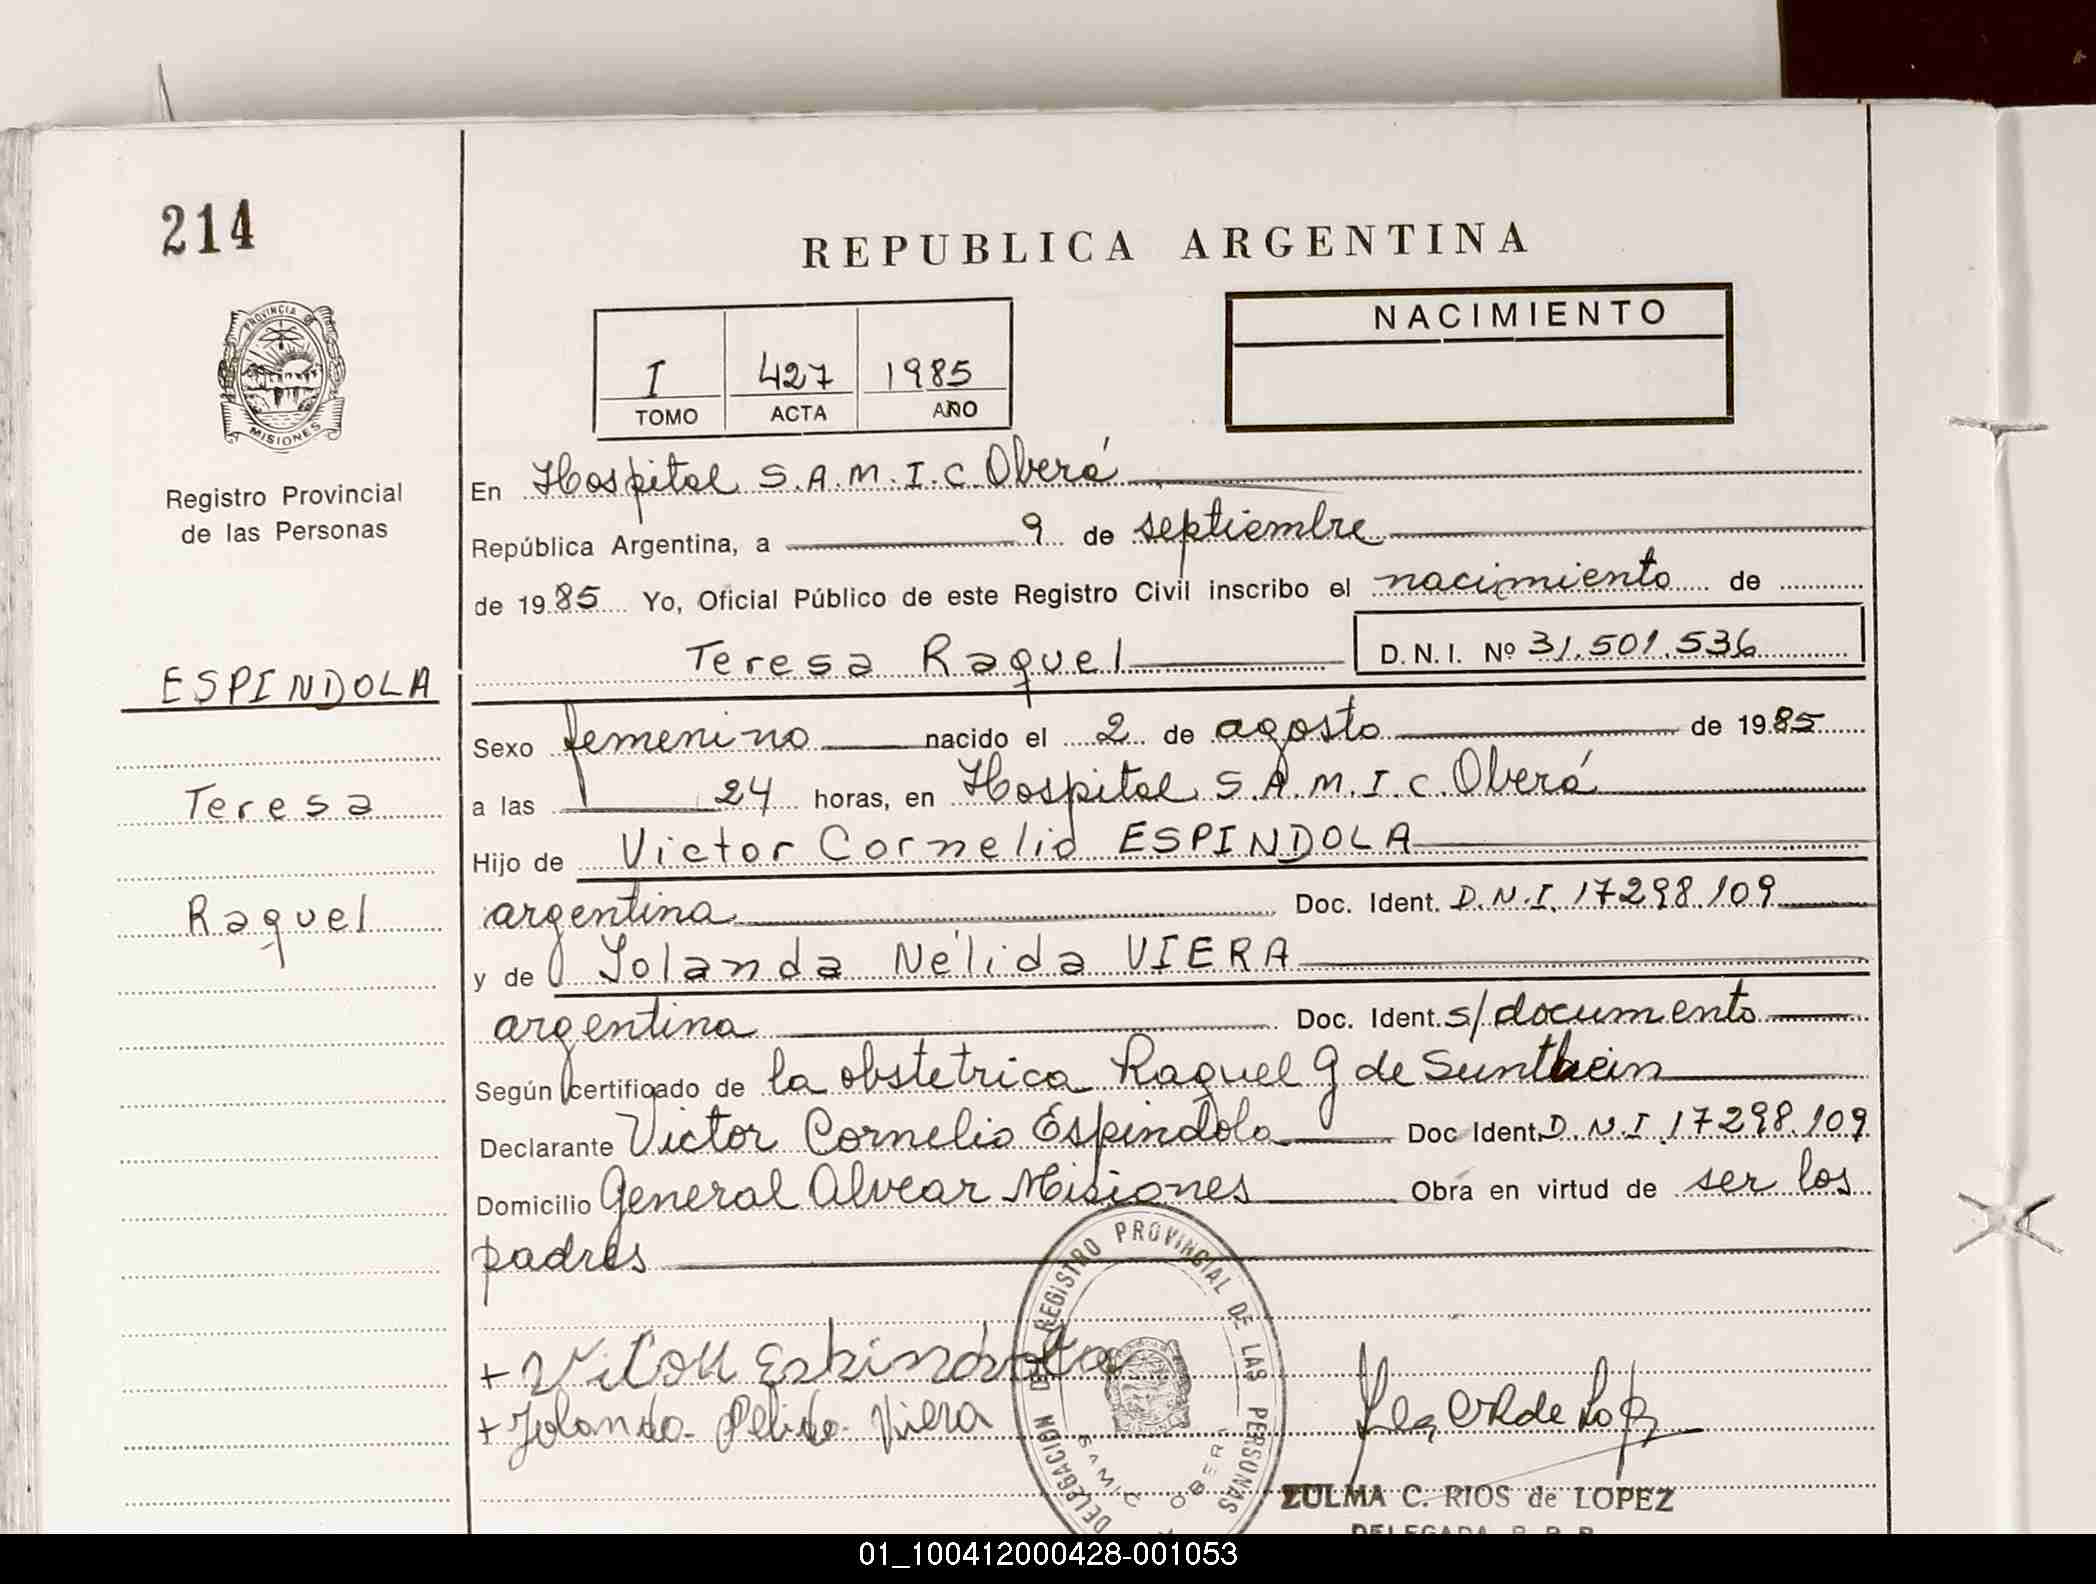 214
REPUBLICA ARGENTINA
NACIMIENTO
I 427 1985
TOMO ACTA AÑO
PROVINCIA DE
MISIONES
Registro Provincial
de las Personas
En Hospital S.A.M.I.C. Oberá
República Argentina, a 9 de septiembre
de 1985 Yo, Oficial Público de este Registro Civil inscribo el nacimiento de
Teresa Raquel D.N.I. Nº 31.501.536
ESPINDOLA
Teresa
Raquel
Sexo femenino nacido el 2 de agosto de 1985
a las 24 horas, en Hospital S.A.M.I.C. Oberá
Hijo de Victor Cornelio ESPINDOLA
argentina Doc. Ident. D.N.I. 17298.109
y de Yolanda Nélida VIERA
argentina Doc. Ident. s/documento
Según certificado de la obstetrica Raquel G de Sunthein
Declarante Victor Cornelio Espindola Doc Ident. D.N.I. 17298.109
Domicilio General Alvear Misiones Obra en virtud de ser los
padres
+ Vitou Espindola
+ Yolanda Nelida Viera
DELEGACION DEL REGISTRO PROVINCIAL DE LAS PERSONAS
SAMIC OBERA
ZULMA C. RIOS de LOPEZ
DELEGADA R. P. P.
01_100412000428-001053